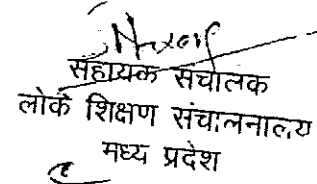 सहायक संचालक
लोक शिक्षण संचालनालय
मध्य प्रदेश